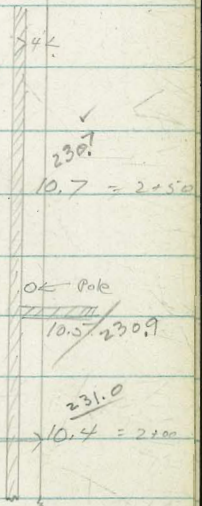 4
230.7
10.7 = 2+50
Pole
10.5/230.9
231.0
10.4 = 2+00